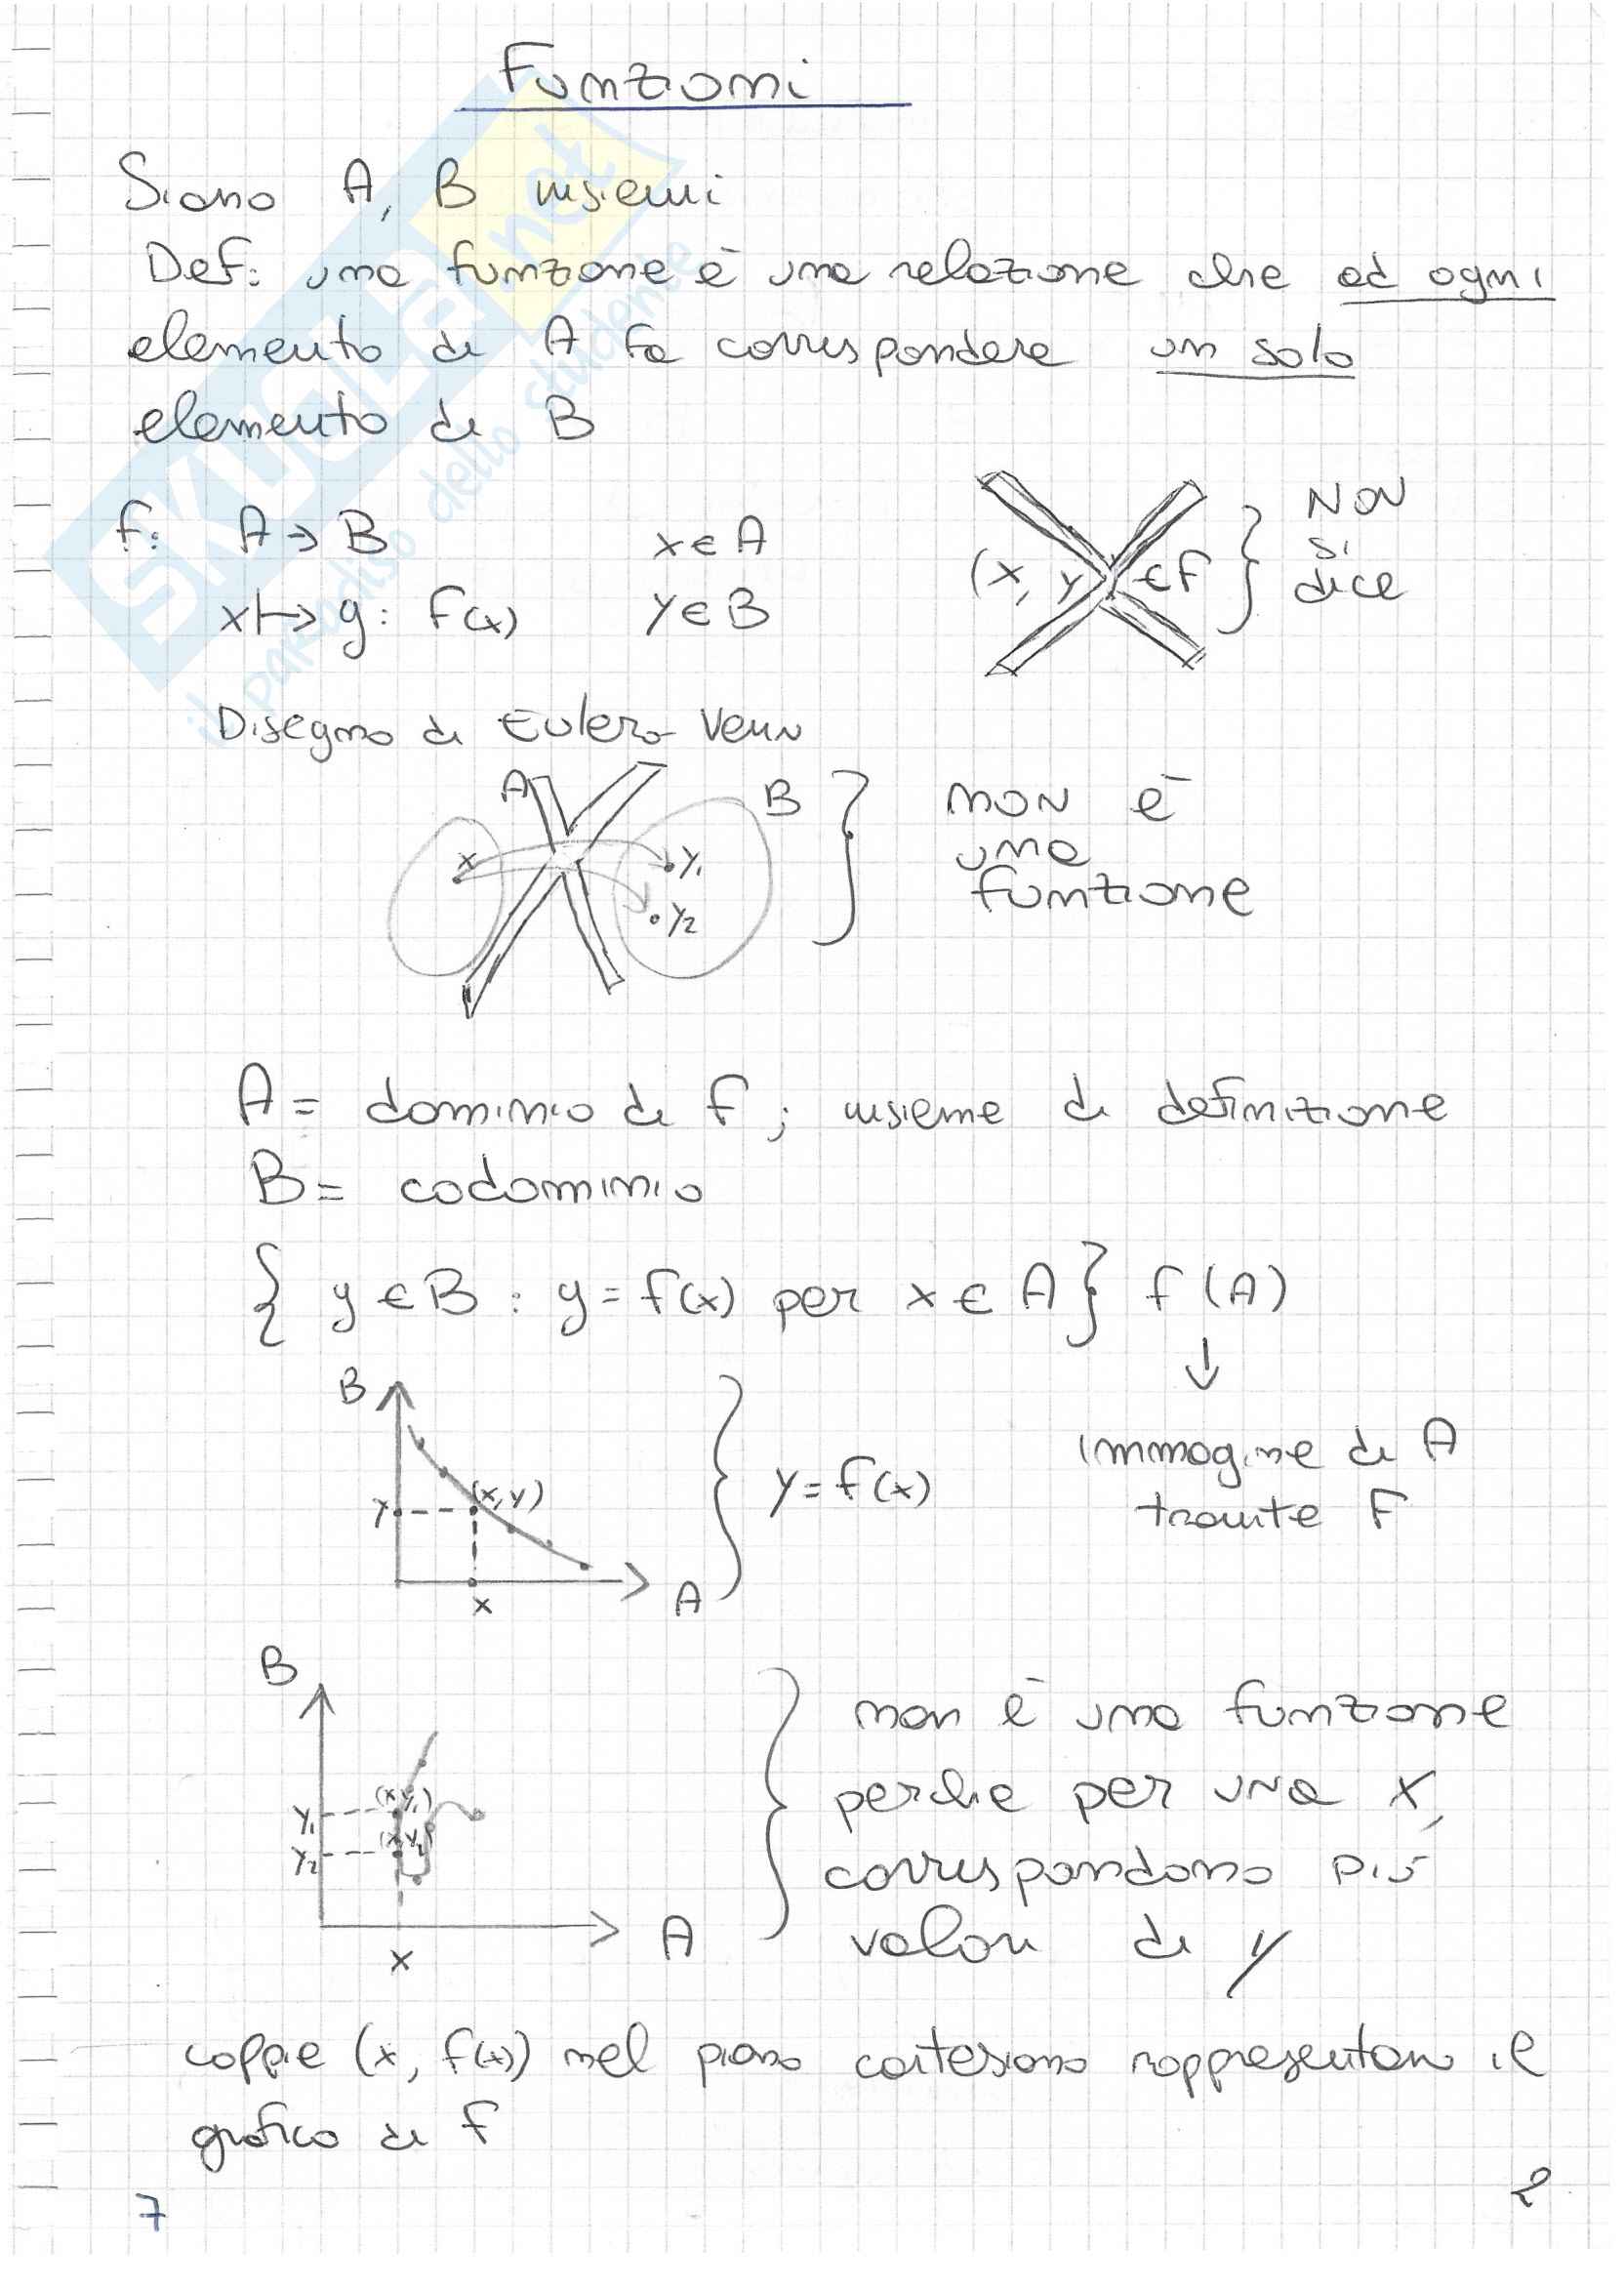 Funzioni
Siano A, B insiemi
Def: una funzione è una relazione che ad ogni
elemento di A fa corrispondere un solo
elemento di B
f: A → B x ∈ A
x ↦ y: f(x) y ∈ B
(x, y) ∈ f } NON
si
dice
Disegno di Eulero-Venn
A B } NON è
una
funzione
x y₁
y₂
A = dominio di f ; insieme di definizione
B = codominio
{ y ∈ B : y = f(x) per x ∈ A } f (A)
↓
immagine di A
tramite F
B
(x, y) } y = f(x)
y
x A
B
non è una funzione
perche per una x,
corrispondono più
valori di y
y₁ (x, y₁)
y₂ (x, y₂)
A
x
coppie (x, f(x)) nel piano cartesiano rappresentano il
grafico di f
7 2
SKUOLA.net
il paradiso dello studente